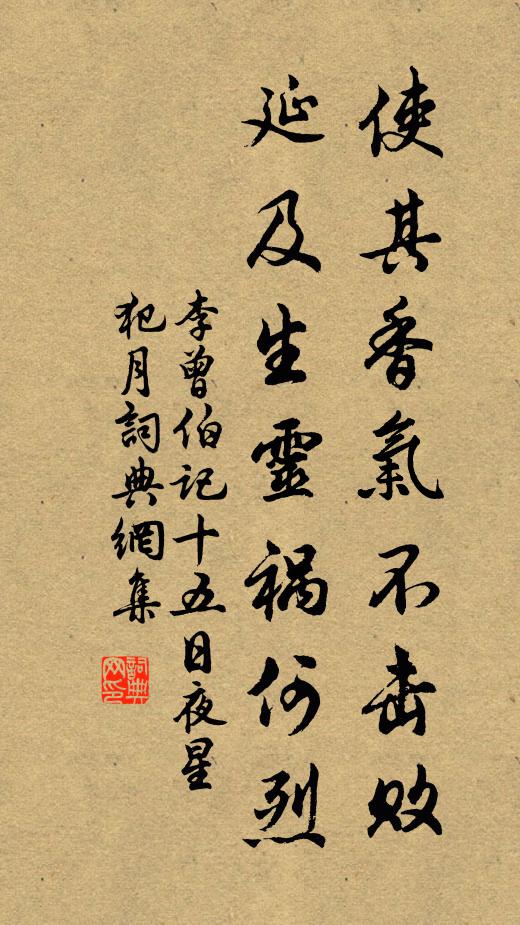 使其香氣不击敗
延及生靈禍何烈
李曾伯記十五日夜星
犯月詞典網集
詞典网印